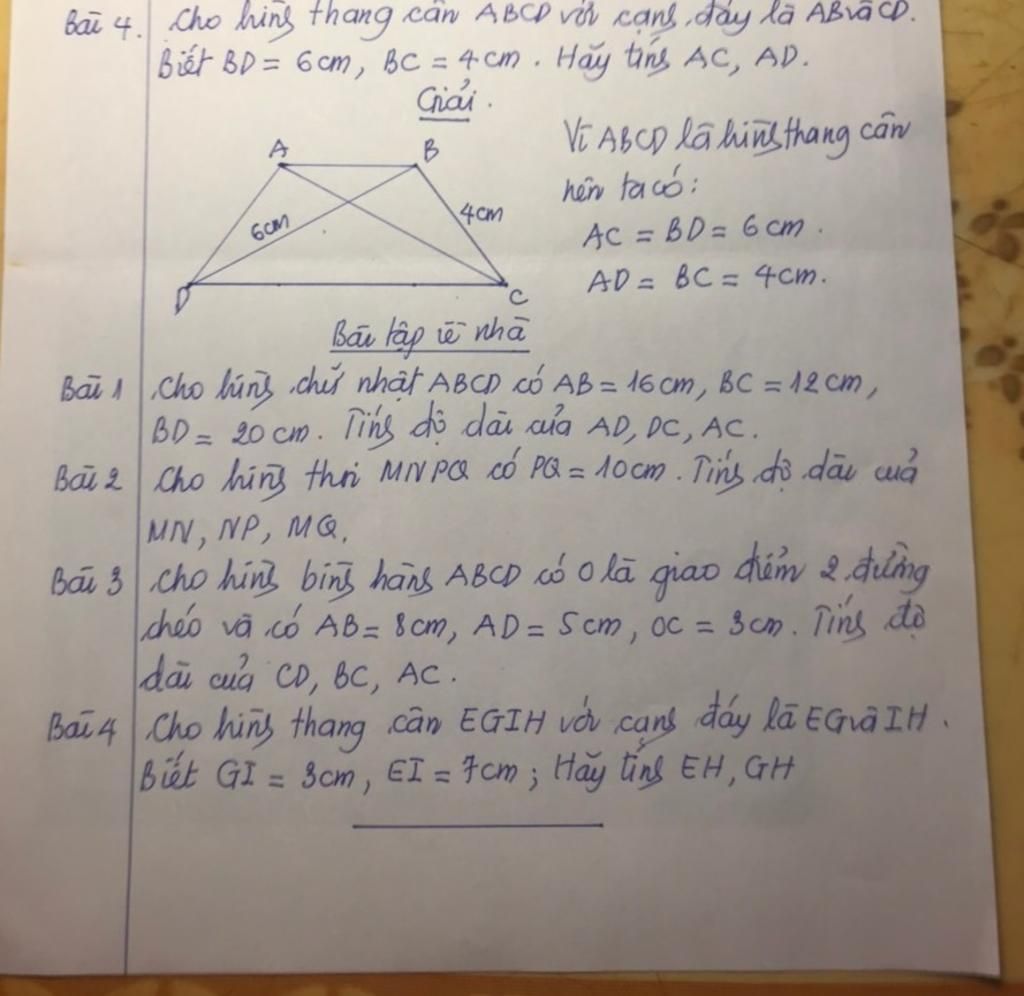 Bài 4. Cho hình thang cân ABCD với cạnh đáy là AB và CD.
Biết BD = 6cm, BC = 4cm. Hãy tính AC, AD.
Giải.
A B
6cm 4cm
D C
Vì ABCD là hình thang cân
nên ta có:
AC = BD = 6cm.
AD = BC = 4cm.
Bài tập về nhà
Bài 1 Cho hình chữ nhật ABCD có AB = 16cm, BC = 12cm,
BD = 20cm. Tính độ dài của AD, DC, AC.
Bài 2 Cho hình thoi MNPQ có PQ = 10cm. Tính độ dài của
MN, NP, MQ.
Bài 3 Cho hình bình hành ABCD có O là giao điểm 2 đường
chéo và có AB = 8cm, AD = 5cm, OC = 3cm. Tính độ
dài của CD, BC, AC.
Bài 4 Cho hình thang cân EGIH với cạnh đáy là EG và IH.
Biết GI = 3cm, EI = 7cm; Hãy tính EH, GH